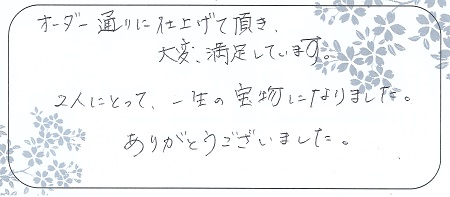 オーダー通りに仕上げて頂き、
大変、満足しています。
2人にとって、一生の宝物になりました。
ありがとうございました。